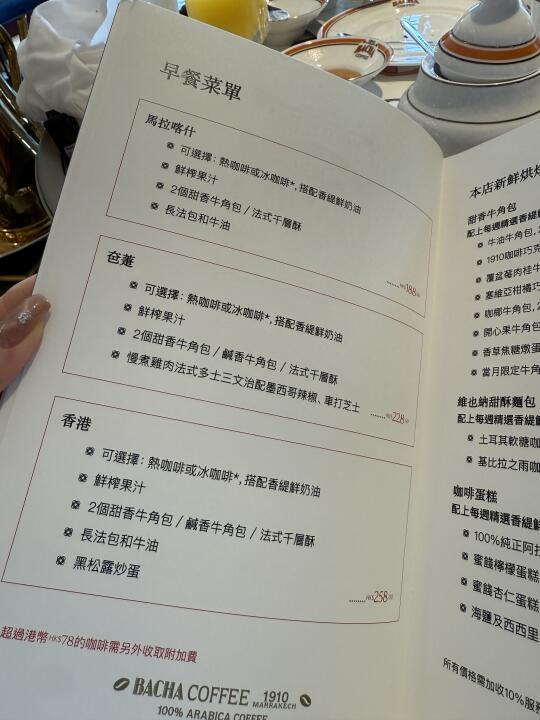 早餐菜單
馬拉喀什
可選擇：熱咖啡或冰咖啡*，搭配香緹鮮奶油
鮮榨果汁
2個甜香牛角包 / 法式千層酥
長法包和牛油
........HK$188.00
芭蕥
可選擇：熱咖啡或冰咖啡*，搭配香緹鮮奶油
鮮榨果汁
2個甜香牛角包 / 鹹香牛角包 / 法式千層酥
慢煮雞肉法式多士三文治配墨西哥辣椒、車打芝士
........HK$228.00
香港
可選擇：熱咖啡或冰咖啡*，搭配香緹鮮奶油
鮮榨果汁
2個甜香牛角包 / 鹹香牛角包 / 法式千層酥
長法包和牛油
黑松露炒蛋
........HK$258.00
超過港幣HK$78的咖啡需另外收取附加費
BACHA COFFEE 1910 MARRAKECH
100% ARABICA COFFEE
本店新鮮烘焙
甜香牛角包
配上每週精選香緹
牛油牛角包, 2
1910咖啡巧克
覆盆莓肉桂牛
塞維亞柑橘巧
咖椰牛角包, 2
開心果牛角包
香草焦糖燉蛋
當月限定牛角
維也納甜酥麵包
配上每週精選香緹
土耳其軟糖咖
基比拉之雨咖
咖啡蛋糕
配上每週精選香緹
100%純正阿拉
蜜餞檸檬蛋糕
蜜餞杏仁蛋糕
海鹽及西西里
所有價格需加收10%服務
BACHA
COFFEE